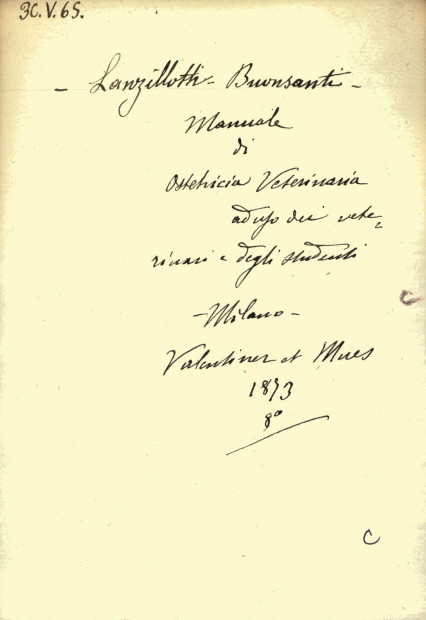 3C.V.65.
- Lanzillotti- Buonsanti -
Manuale
di
Ostetricia Veterinaria
ad uso dei vete=
rinari e degli studenti
- Milano -
Valentiner et Mues
1873
8º
C